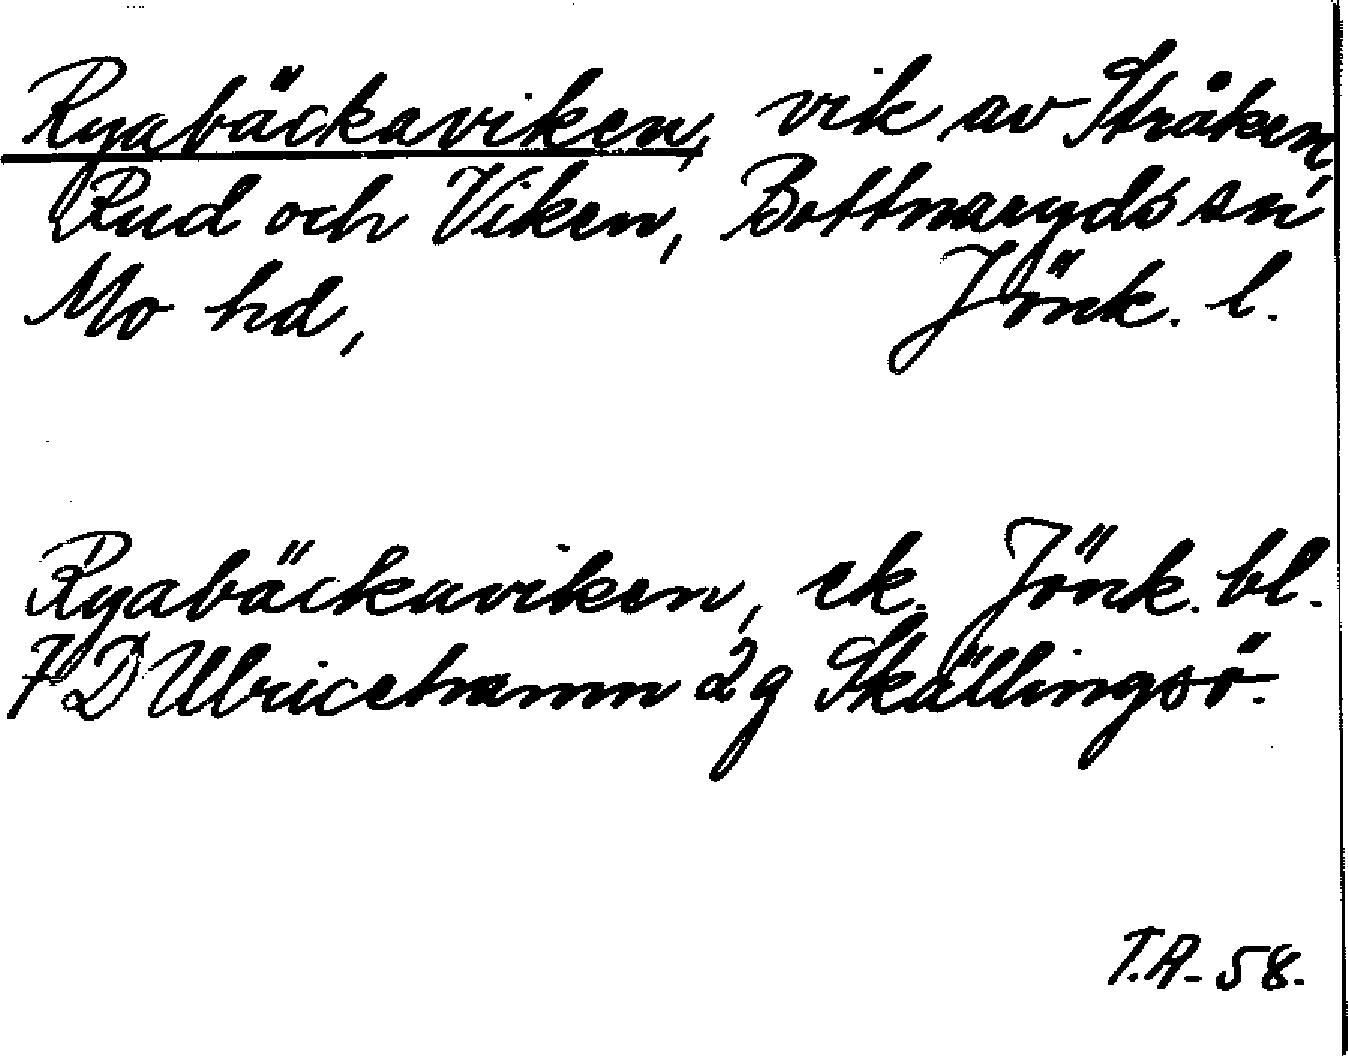 Ryabäckaviken, vik av Stråken,
Rud och Viken, Bottnaryds sn
Mo hd, Jönk. l.
Ryabäckaviken, ek. Jönk. bl.
7 D Ulricehamn 2 g Skällingsö.
T.A. 58.